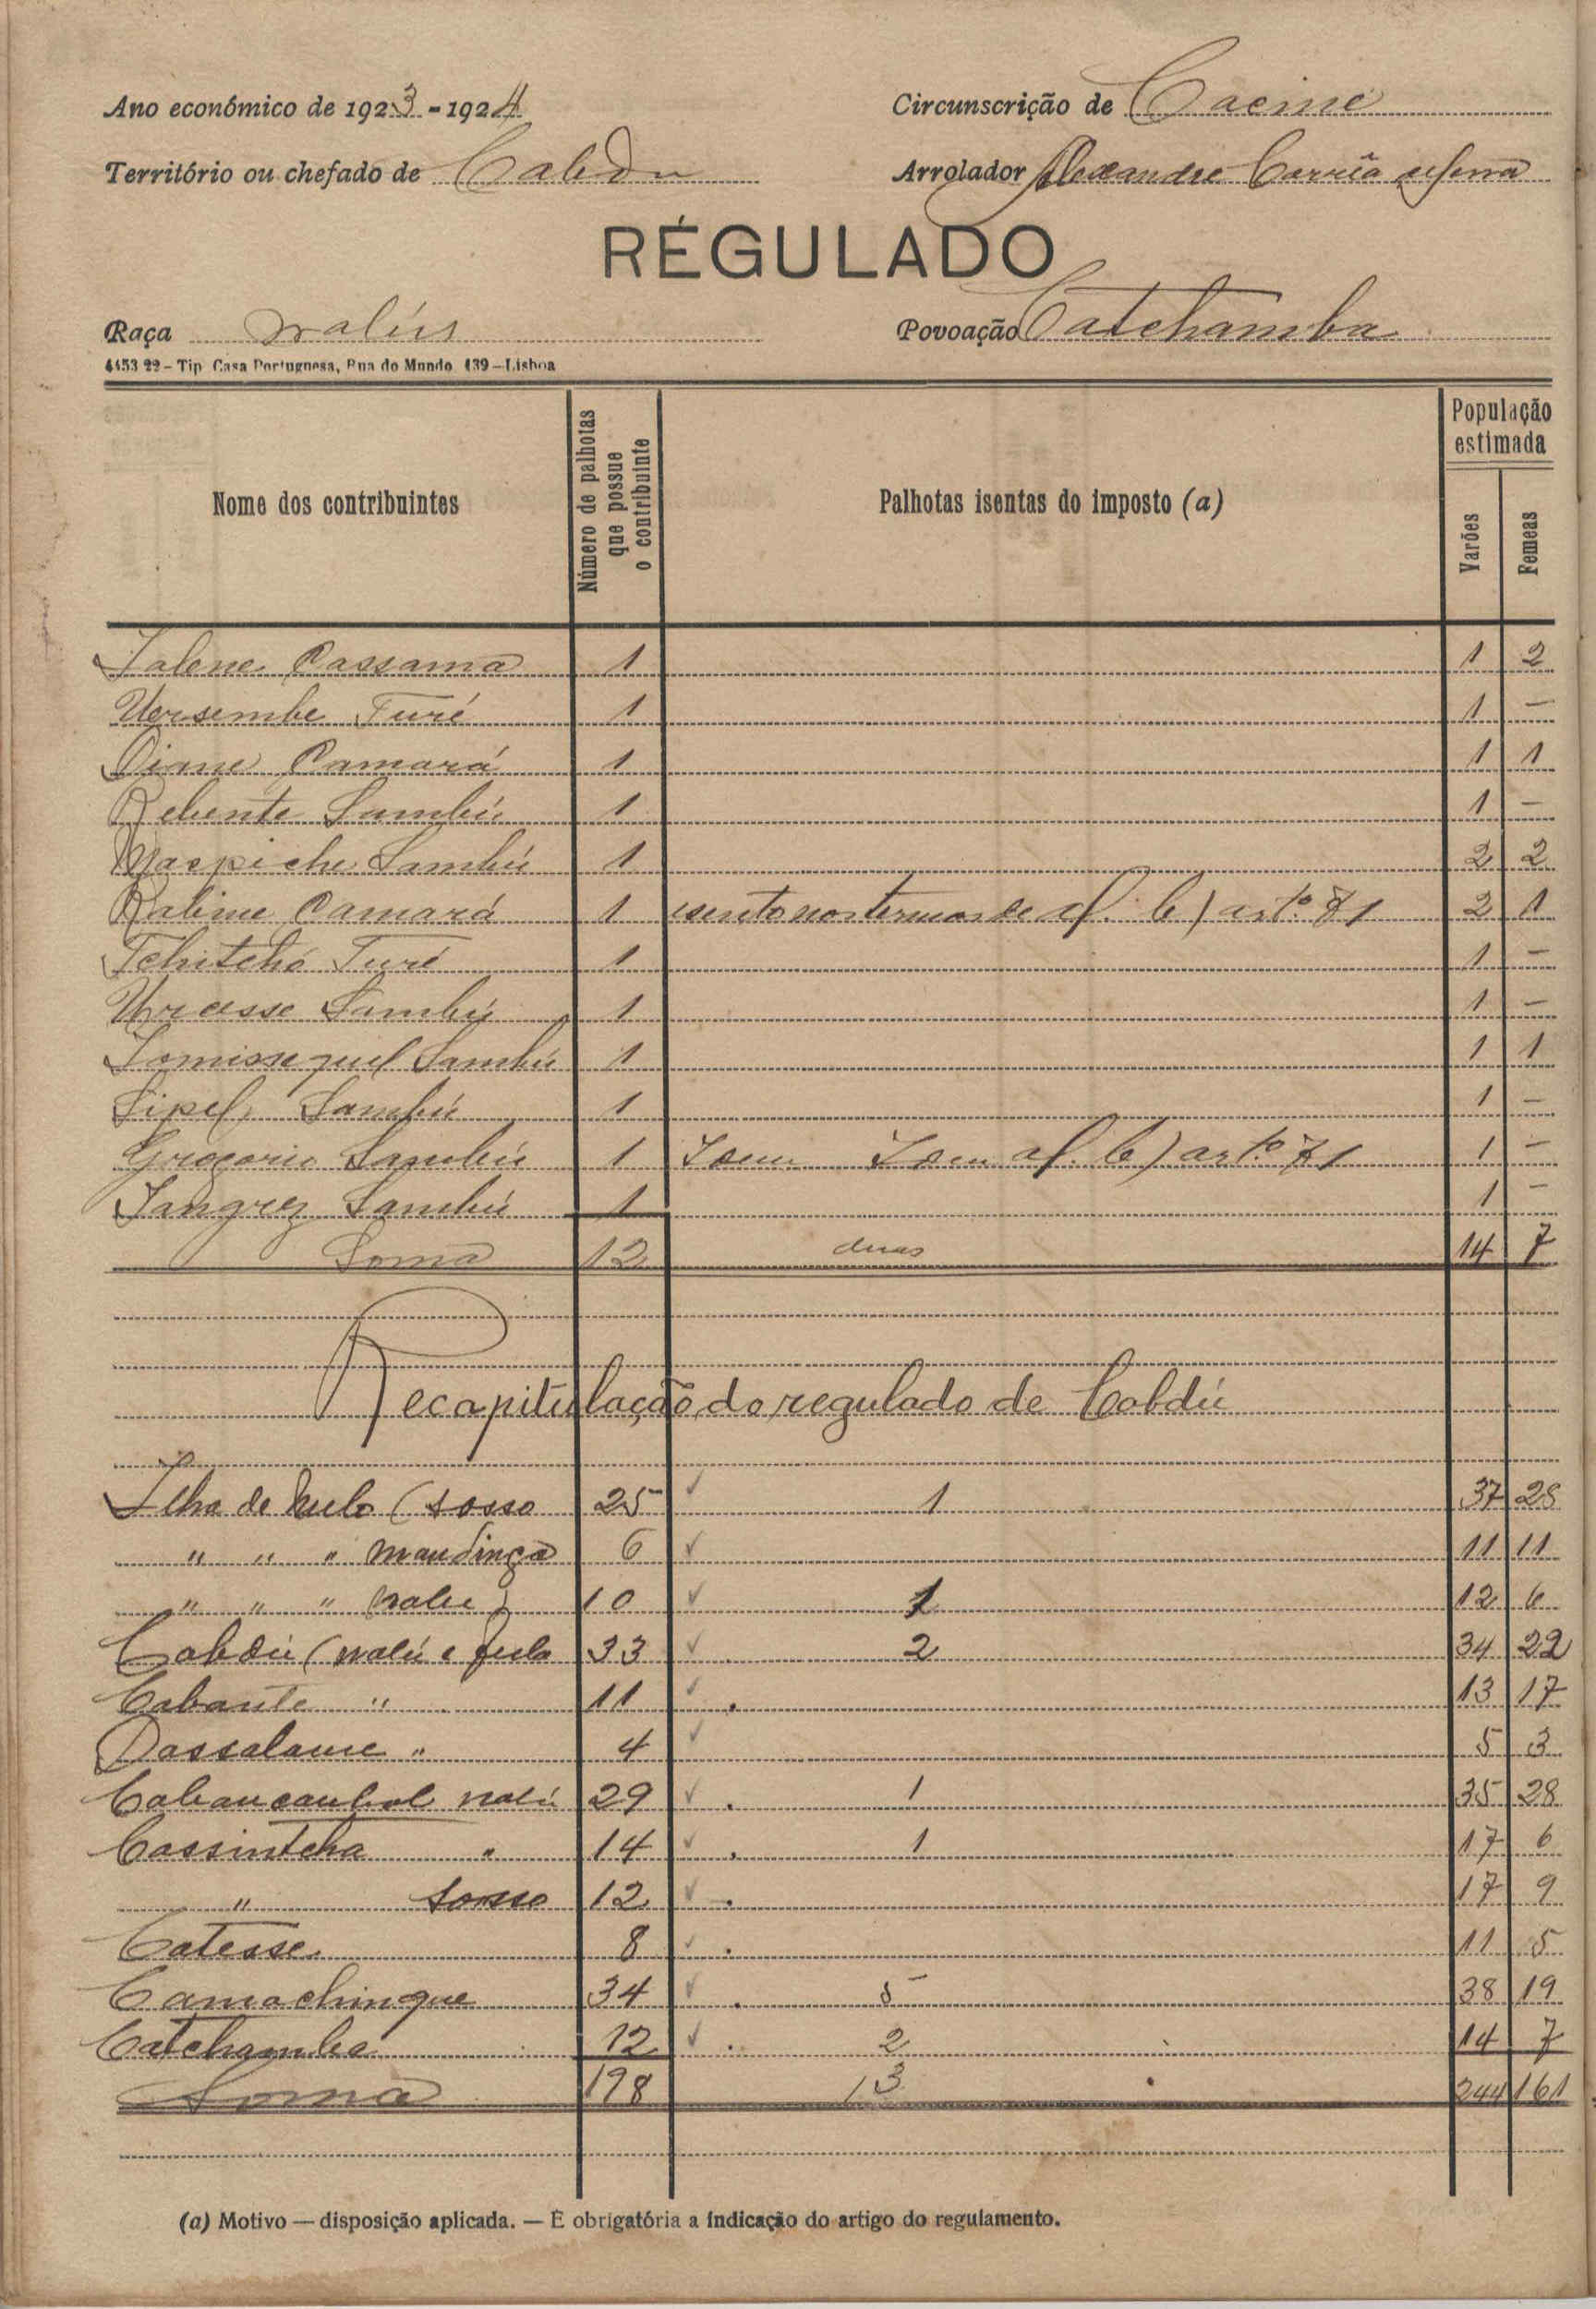 Ano económico de 1923-1924
Circunscrição de Cacine
Território ou chefado de Cabdu
Arrolador Alexandre Corrêa
RÉGULADO
Raça nalús
Povoação Catchamba
4453 22 – Tip Casa Portuguesa, Rua do Mundo 139 – Lisboa
Nome dos contribuintes
Número de palhotas que possue o contribuinte
Palhotas isentas do imposto (a)
População estimada
Varões
Femeas
Cassama 1 1 2
Turé 1 1 –
Camará 1 1 1
Sambú 1 1 –
Sambú 1 2 2
Camará 1 al. b) artº 1 2 1
Tchitchó Turé 1 1 –
Sambú 1 1 –
Sambú 1 1 1
Sipel Sambú 1 1 –
Sambú 1 Idem Idem al. b) artº 1 1 –
Sambú 1 1 –
Soma 12 duas 14 7
Recapitulação do regulado de Cabdú
Ilha de Melo (sosso 25 1 37 28
" " " mandinga 6 11 11
" " " nalu) 10 1 12 6
Cabdú (nalú e fula 33 2 34 22
Cabante " 11 13 17
Dassalame " 4 5 3
nalú 29 1 35 28
Cassintcha " 14 1 17 6
" sosso 12 17 9
Catesse 8 11 5
Camachinque 34 5 38 19
Catchamba 12 2 14 7
Soma 198 13 244 161
(a) Motivo — disposição aplicada. — É obrigatória a indicação do artigo do regulamento.